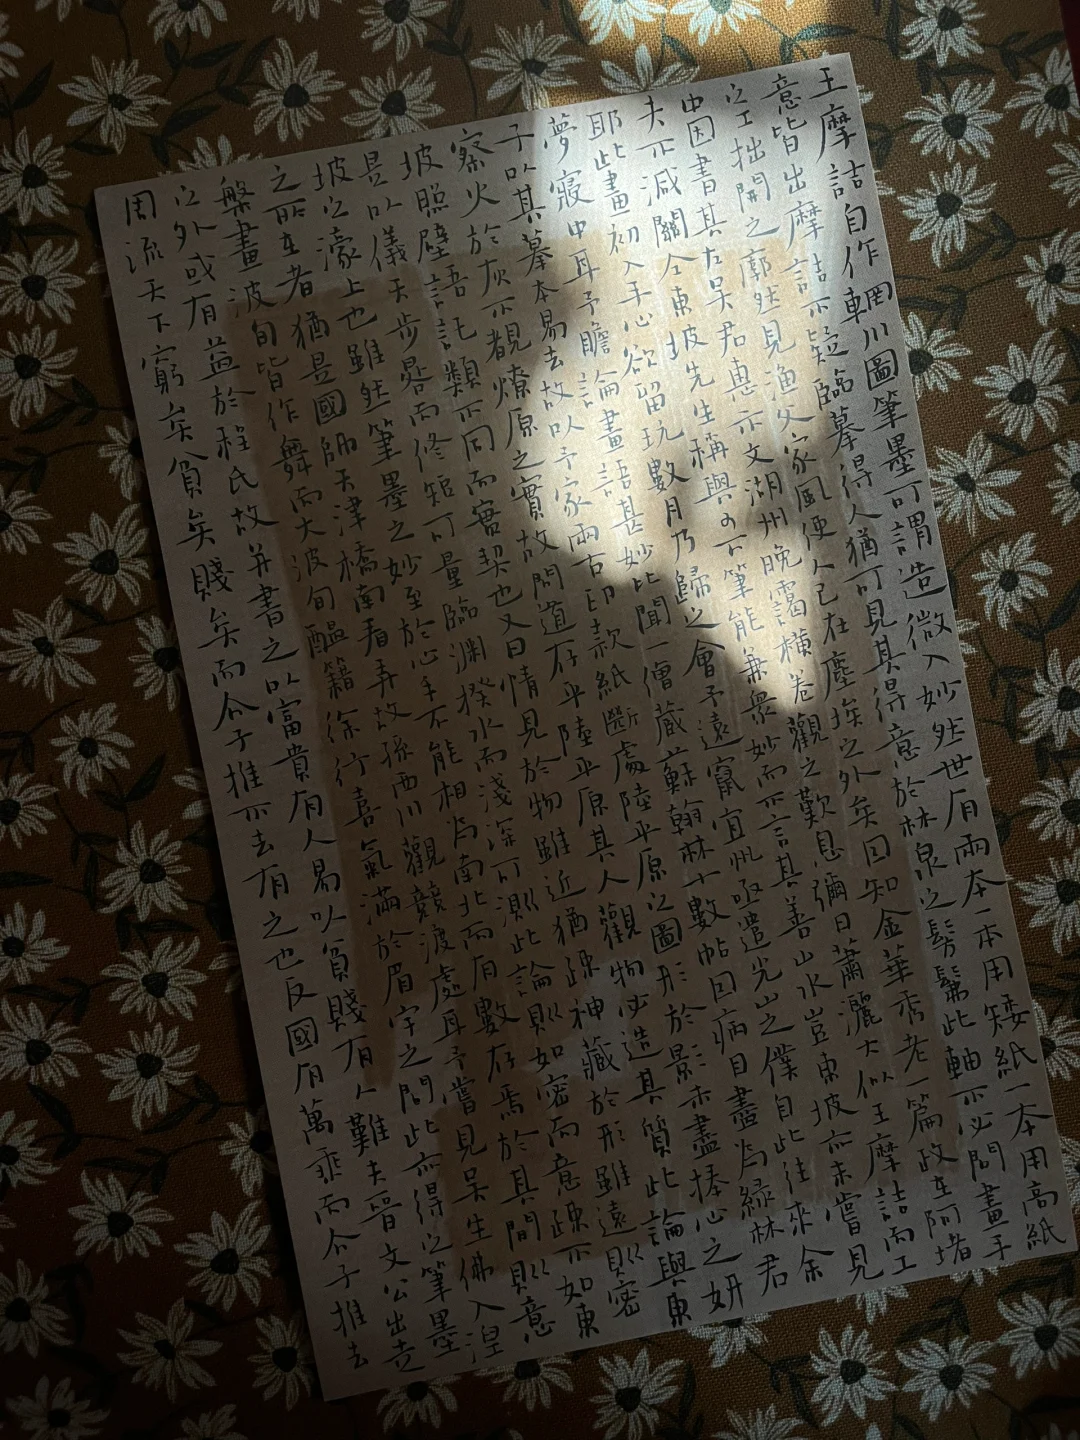 王摩詰自作輞川圖筆墨可謂造微入妙然世有兩本一本用矮紙一本用高紙
意皆出摩詰不疑臨摹得人猶可見其得意於林泉之髣髴此軸不必問畫手
之工拙開之廓然見漁父家風便人已在塵埃之外矣回知金華秀老一篇政在阿堵
中因書其右吳君惠示文湖州晚靄橫卷觀之歎息彌日蕭灑大似王摩詰而工
夫不減關仝東坡先生稱與可下筆能兼衆妙而不言其善山水豈東坡亦未嘗見
耶此畫初入手心欲留玩數月乃歸之會予遠竄宜州亟遣光山之僕自此往來余
夢寐中耳子瞻論畫語甚妙比聞一僧藏蘇翰林十數帖回病目盡為綠林君
子以其摹本易去故以予家兩古印款紙斷處陸平原之圖形於影未盡捧心之妍
察火於灰不覩燎原之實故問道存乎陸平原其人觀物必造其質此論與東
坡照壁語託類不同而實契也又曰情見於物雖近猶踈神藏於形雖遠則密
是以儀天步晷而修短可量臨淵揆水而淺深可測此論則如密而意踈不如東
坡之濠上也雖然筆墨之妙至於心手不能相為南北而有數存焉於其間則意
之所在者猶是國師天津橋南看弄故孫西川觀競渡處耳予嘗見吳生佛入涅
槃畫波旬皆作舞而大波旬醖籍徐行喜氣滿於眉宇之間此亦得之筆墨
之外或有益於程氏故并書之以富貴有人易以貧賤有人難夫晉文公出走
周流天下窮矣貧矣賤矣而介子推不去有之也反國有萬乘而介子推去